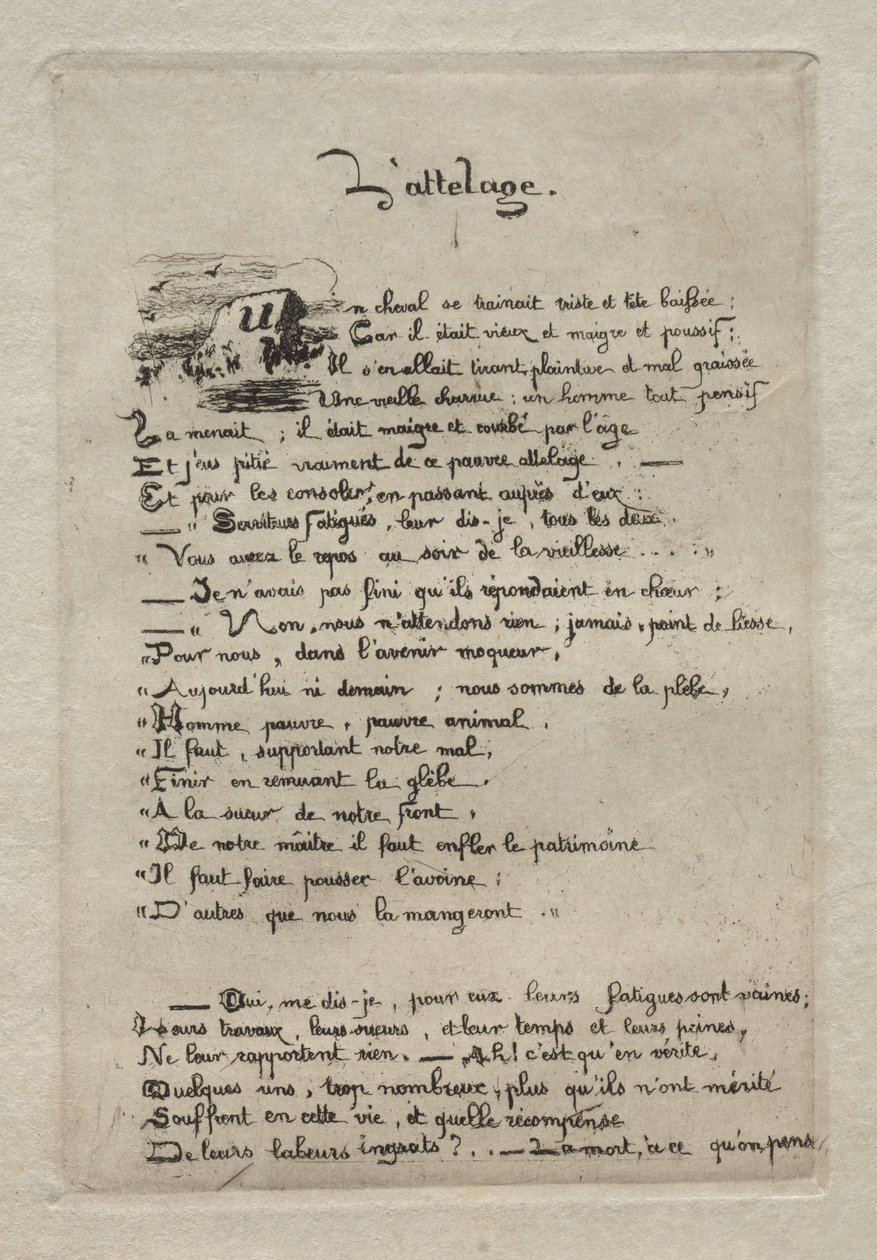 L'attelage.
Un cheval se trainait triste et tête baissée ;
Car il était vieux et maigre et poussif ;
Il s'en allait tirant, plaintive et mal graissée
Une vieille charrue : un homme tout pensif
La menait ; il était maigre et courbé par l'âge
Et j'eus pitié vraiment de ce pauvre attelage . —
Et pour les consoler, en passant auprès d'eux :
— " Serviteurs fatigués, leur dis-je, tous les deux,
" Vous aurez le repos au soir de la vieillesse . . . "
— Je n'avais pas fini qu'ils répondaient en chœur ;
— " Non, nous n'attendons rien ; jamais, point de liesse,
" Pour nous, dans l'avenir moqueur,
" Aujourd'hui ni demain ; nous sommes de la plèbe,
" Homme pauvre, pauvre animal,
" Il faut, supportant notre mal,
" Finir en remuant la glèbe.
" A la sueur de notre front,
" De notre maître il faut enfler le patrimoine
" Il faut faire pousser l'avoine ;
" D'autres que nous la mangeront . "
— Oui, me dis-je, pour eux leurs fatigues sont vaines ;
Leurs travaux, leurs sueurs, et leur temps et leurs peines,
Ne leur rapportent rien. — Ah! c'est qu'en vérité,
Quelques uns, trop nombreux, plus qu'ils n'ont mérité
Souffrent en cette vie, et quelle récompense
De leurs labeurs ingrats ? . . — La mort, à ce qu'on pense